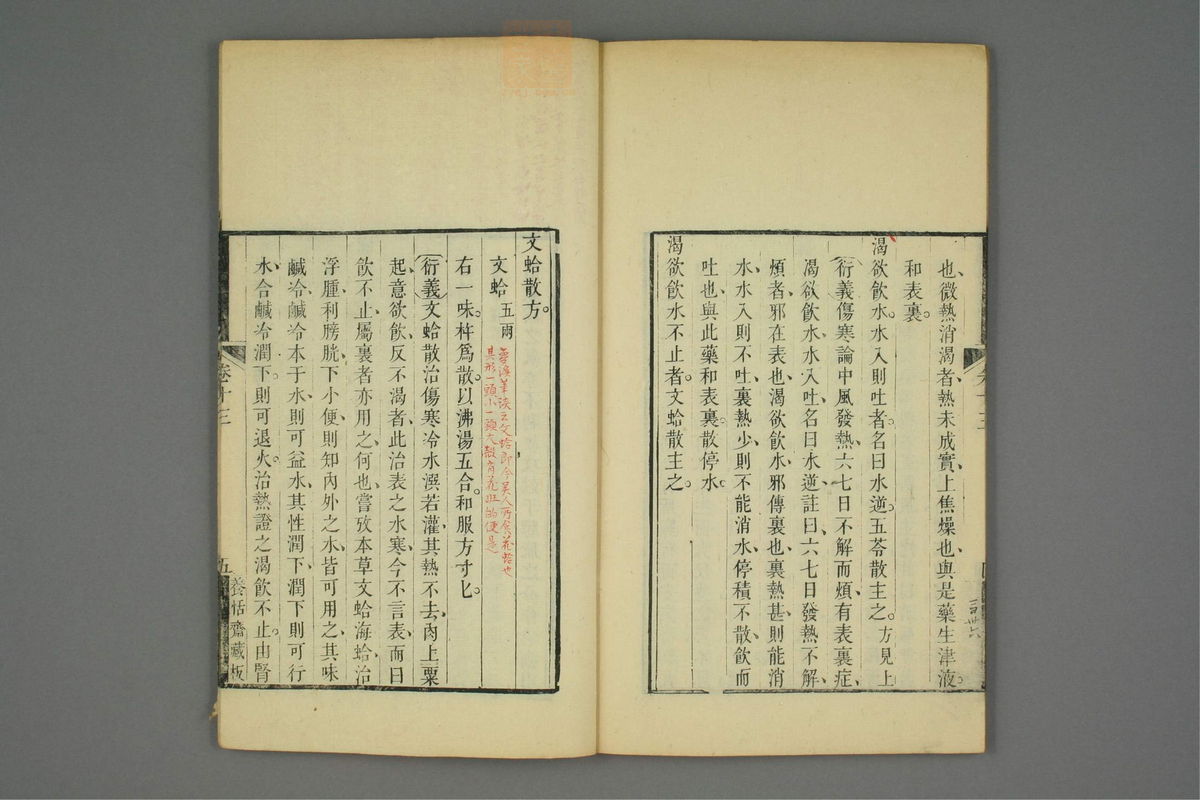 也微熱消渴者熱未成實上焦燥也與是藥生津液
和表裏
渴欲飲水水入則吐者名曰水逆五苓散主之方見上
衍義傷寒論中風發熱六七日不解而煩有表裏症
渴欲飲水水入吐名曰水逆註曰六七日發熱不解
煩者邪在表也渴欲飲水邪傳裏也裏熱甚則能消
水水入則不吐裏熱少則不能消水停積不散飲而
吐也與此藥和表裏散停水
渴欲飲水不止者文蛤散主之
文蛤散方
文蛤 五兩
夢溪筆談云文蛤即今吳人所食花蛤也
其形一頭小一頭大殼有花斑的便是
右一味杵為散以沸湯五合和服方寸匕
衍義文蛤散治傷寒冷水潠若灌其熱不去肉上粟
起意欲飲反不渴者此治表之水寒今不言表而曰
飲不止屬裏者亦用之何也嘗攷本草文蛤海蛤治
浮腫利膀胱下小便則知內外之水皆可用之其味
鹹冷鹹冷本于水則可益水其性潤下潤下則可行
水合鹹冷潤下則可退火治熱證之渴飲不止由腎
卷十三
五
養恬齋藏板